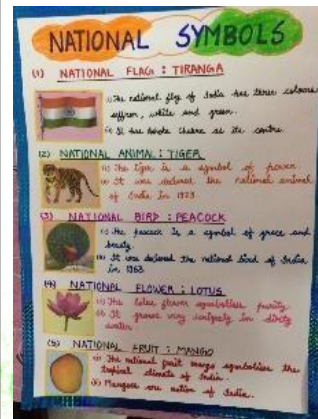 NATIONAL SYMBOLS
(1) NATIONAL FLAG : TIRANGA
(i) The national flag of India has three colours
saffron, white and green.
(ii) It has Ashoka Chakra at its centre.
(2) NATIONAL ANIMAL : TIGER
(i) The tiger is a symbol of power
(ii) It was declared the national animal
of India in 1973
(3) NATIONAL BIRD : PEACOCK
(i) The peacock is a symbol of grace and
beauty.
(ii) It was declared the national bird of India
in 1963.
(4) NATIONAL FLOWER : LOTUS
(i) The lotus flower symbolises purity
(ii) It grows very in dirty
water
(5) NATIONAL FRUIT : MANGO
(i) The national fruit mango symbolises the
tropical climate of India.
(ii) Mangoes are native of India.